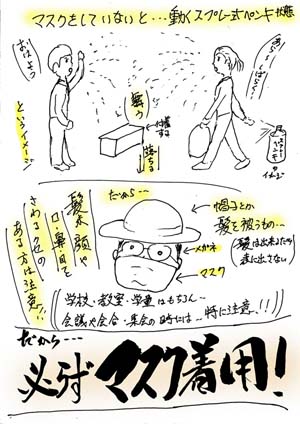 マスクをしていないと…動くスプレー式ペンキ状態
おはよう
というイメージ
舞う
付着する
落ちる
のイメージ
だから…
髪や顔や
口・鼻・目を
さわるクセの
ある方は注意!!
帽子とか
髪を被うもの…
(髪は出来るだけ
表に出さない)
メガネ
マスク
学校、教室・学童はもちろん…
会議や会合・集会の時には…特に注意!!
だから…
必らず マスク着用!